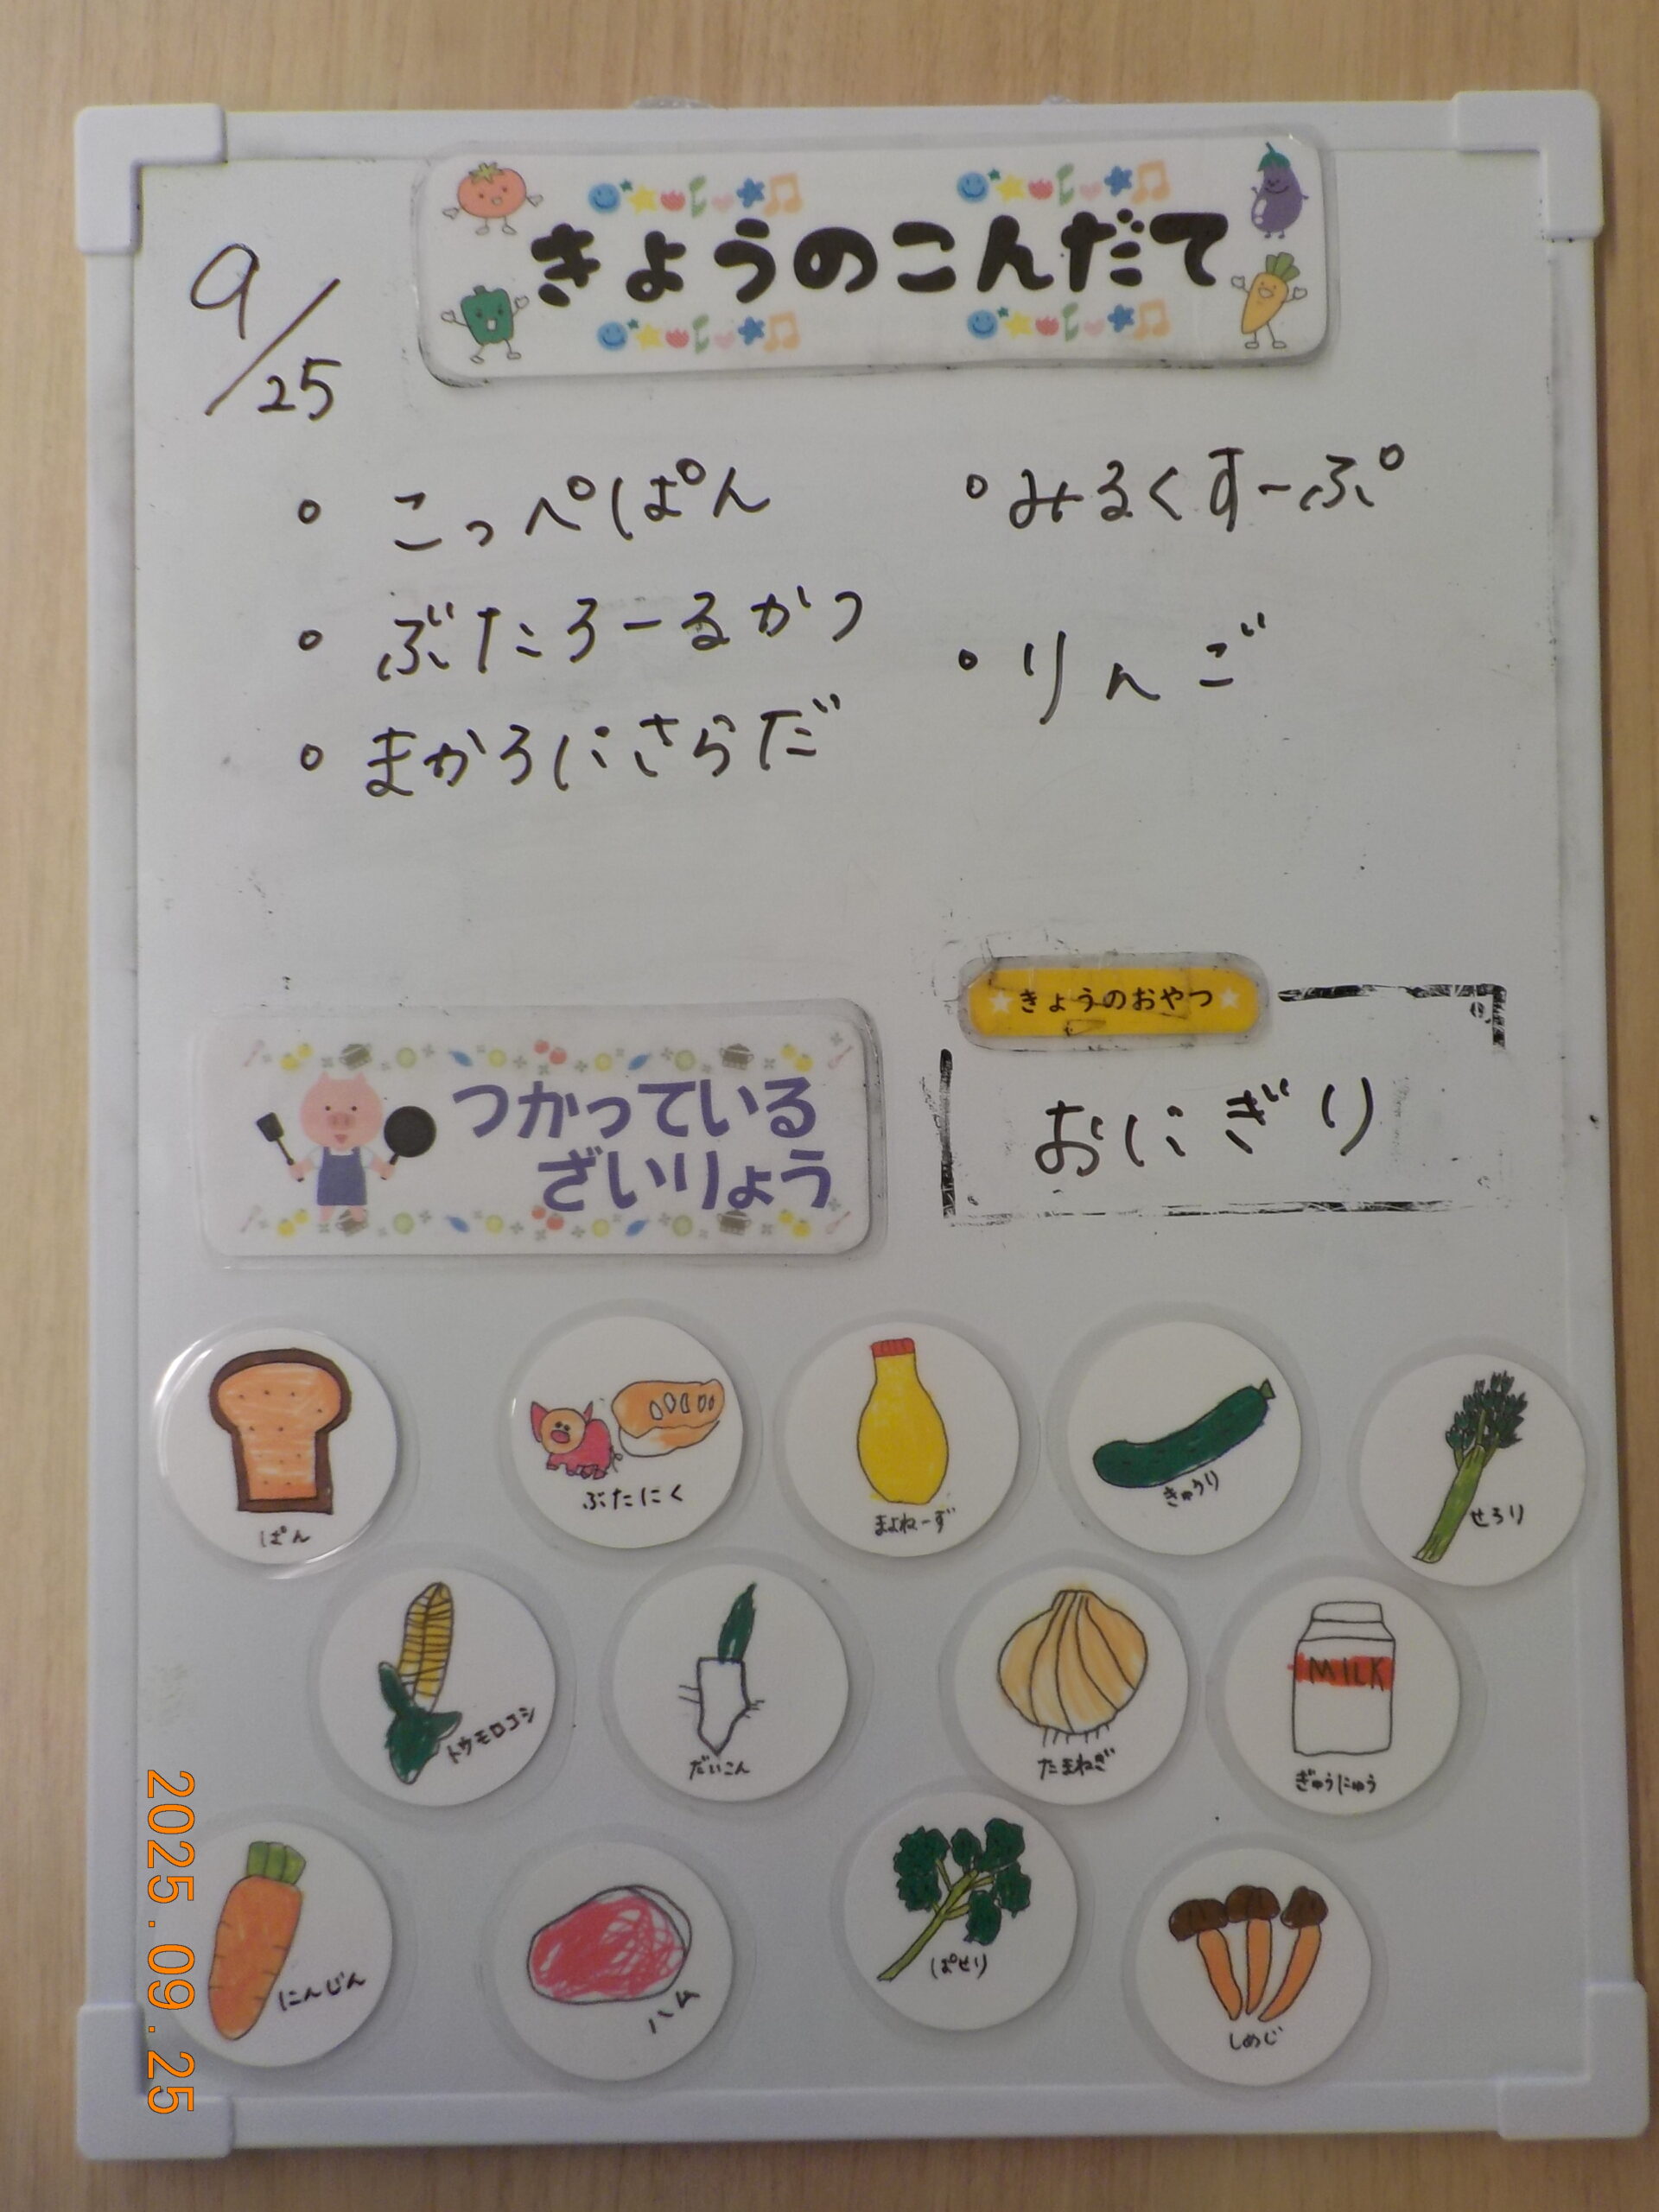 きょうのこんだて
9/25
• こっぺぱん
• ぶたろーるかつ
• まかろにさらだ
• みるくすーぷ
• りんご
きょうのおやつ
おにぎり
つかっている
ざいりょう
ぱん
ぶたにく
まよねーず
きゅうり
せろり
トウモロコシ
だいこん
たまねぎ
MILK
ぎゅうにゅう
にんじん
ハム
ぱせり
しめじ
2025.09.25